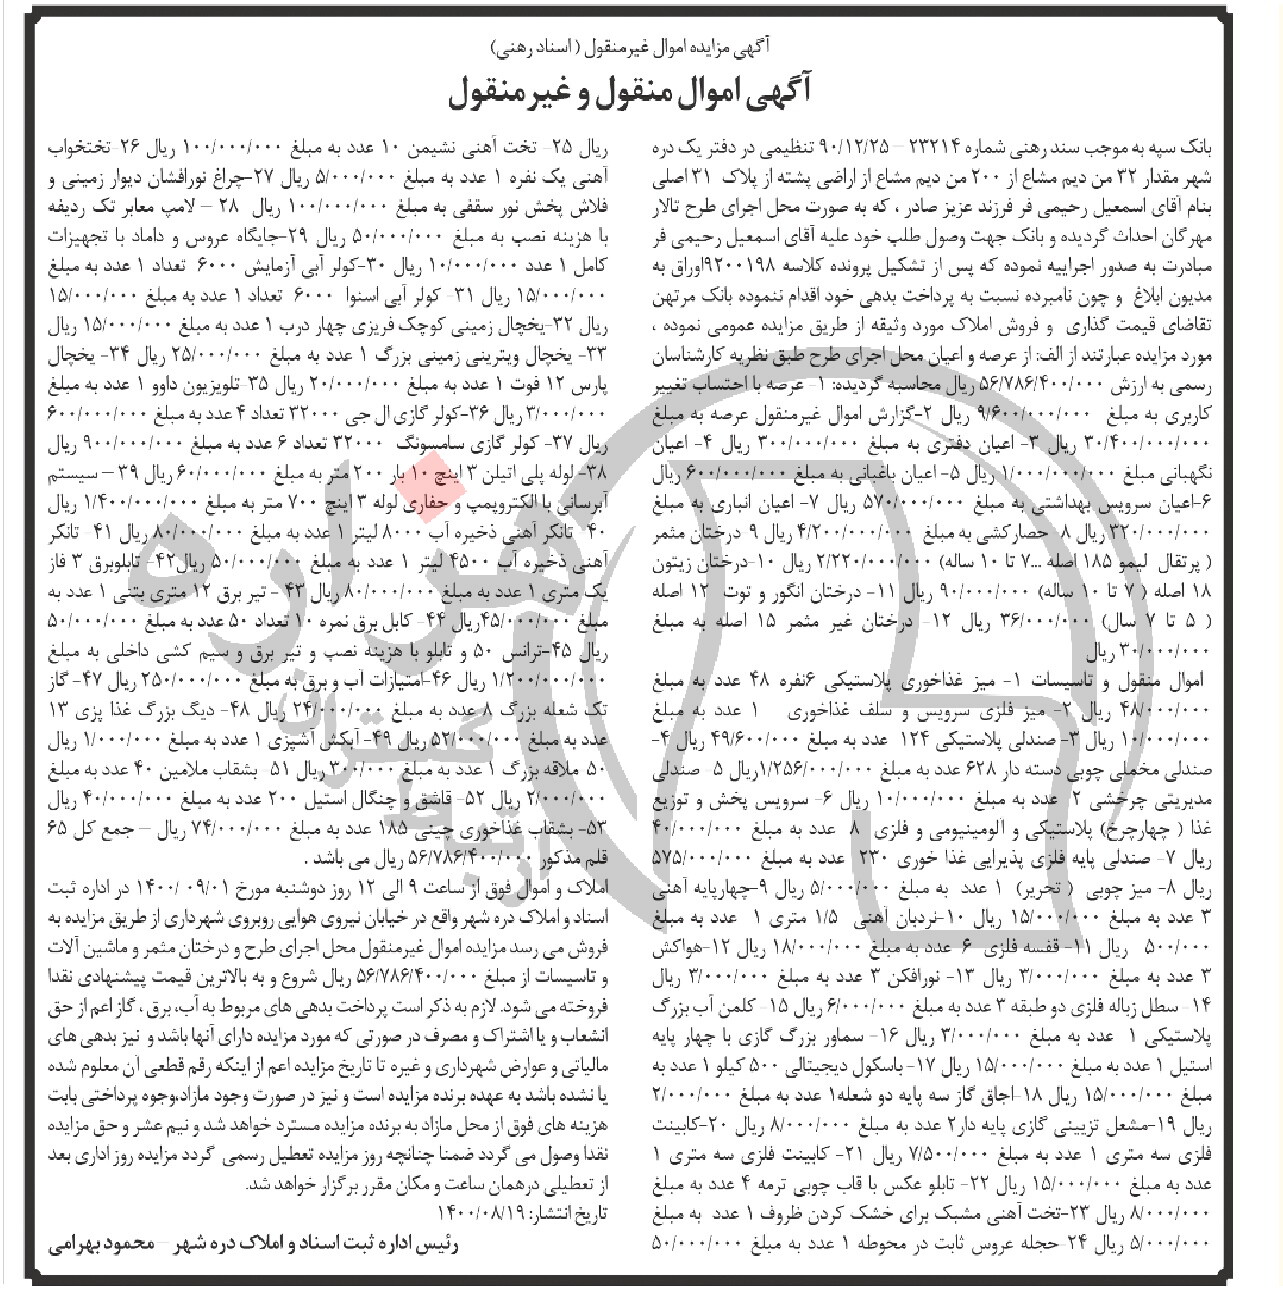 آگهی مزایده اموال غیرمنقول ( اسناد رهنی)
آگهی اموال منقول و غیرمنقول
بانک سپه به موجب سند رهنی شماره ۲۳۲۱۴ – ۹۰/۱۲/۲۵ تنظیمی در دفتر یک دره
شهر مقدار ۳۲ من دیم مشاع از ۲۰۰ من دیم مشاع از اراضی پشته از پلاک ۳۱ اصلی
بنام آقای اسمعیل رحیمی فر فرزند عزیز صادر ، که به صورت محل اجرای طرح تالار
مهرگان احداث گردیده و بانک جهت وصول طلب خود علیه آقای اسمعیل رحیمی فر
مبادرت به صدور اجراییه نموده که پس از تشکیل پرونده کلاسه ۹۲۰۰۱۹۸اوراق به
مدیون ابلاغ و چون نامبرده نسبت به پرداخت بدهی خود اقدام ننموده بانک مرتهن
تقاضای قیمت گذاری و فروش املاک مورد وثیقه از طریق مزایده عمومی نموده ،
مورد مزایده عبارتند از الف: از عرصه و اعیان محل اجرای طرح طبق نظریه کارشناسان
رسمی به ارزش ۵۶/۷۸۶/۴۰۰/۰۰۰ ریال محاسبه گردیده: ۱- عرصه با احتساب تغییر
کاربری به مبلغ ۹/۶۰۰/۰۰۰/۰۰۰ ریال ۲-گزارش اموال غیرمنقول عرصه به مبلغ
۳۰/۴۰۰/۰۰۰/۰۰۰ ریال ۳- اعیان دفتری به مبلغ ۳۰۰/۰۰۰/۰۰۰ ریال ۴- اعیان
نگهبانی مبلغ ۱/۰۰۰/۰۰۰/۰۰۰ ریال ۵- اعیان باغبانی به مبلغ ۶۰۰/۰۰۰/۰۰۰ ریال
۶-اعیان سرویس بهداشتی به مبلغ ۵۷۰/۰۰۰/۰۰۰ ریال ۷- اعیان انباری به مبلغ
۳۲۰/۰۰۰/۰۰۰ ریال ۸- حصارکشی به مبلغ ۴/۲۰۰/۰۰۰/۰۰۰ ریال ۹ درختان مثمر
( پرتقال لیمو ۱۸۵ اصله ...۷ تا ۱۰ ساله) ۲/۲۲۰/۰۰۰/۰۰۰ ریال ۱۰-درختان زیتون
۱۸ اصله ( ۷ تا ۱۰ ساله) ۹۰/۰۰۰/۰۰۰ ریال ۱۱- درختان انگور و توت ۱۲ اصله
( ۵ تا ۷ سال) ۳۶/۰۰۰/۰۰۰ ریال ۱۲- درختان غیر مثمر ۱۵ اصله به مبلغ
۳۰/۰۰۰/۰۰۰ ریال
اموال منقول و تاسیسات ۱- میز غذاخوری پلاستیکی ۶نفره ۴۸ عدد به مبلغ
۴۸/۰۰۰/۰۰۰ ریال ۲- میز فلزی سرویس و سلف غذاخوری ۱ عدد به مبلغ
۱۰/۰۰۰/۰۰۰ ریال ۳- صندلی پلاستیکی ۱۲۴ عدد به مبلغ ۴۹/۶۰۰/۰۰۰ ریال ۴-
صندلی مخملی چوبی دسته دار ۶۲۸ عدد به مبلغ ۱/۲۵۶/۰۰۰/۰۰۰ریال ۵- صندلی
مدیریتی چرخشی ۲ عدد به مبلغ ۱۰/۰۰۰/۰۰۰ ریال ۶- سرویس پخش و توزیع
غذا ( چهارچرخ) پلاستیکی و الومینیومی و فلزی ۸ عدد به مبلغ ۴۰/۰۰۰/۰۰۰
ریال ۷- صندلی پایه فلزی پذیرایی غذا خوری ۲۳۰ عدد به مبلغ ۵۷۵/۰۰۰/۰۰۰
ریال ۸- میز چوبی ( تحریر) ۱ عدد به مبلغ ۵/۰۰۰/۰۰۰ ریال ۹-چهارپایه آهنی
۳ عدد به مبلغ ۱۵/۰۰۰/۰۰۰ ریال ۱۰-نردبان آهنی ۱/۵ متری ۱ عدد به مبلغ
۵۰۰/۰۰۰ ریال ۱۱- قفسه فلزی ۶ عدد به مبلغ ۱۸/۰۰۰/۰۰۰ ریال ۱۲-هواکش
۳ عدد به مبلغ ۳/۰۰۰/۰۰۰ ریال ۱۳- نورافکن ۳ عدد به مبلغ ۳/۰۰۰/۰۰۰ ریال
۱۴-سطل زباله فلزی دو طبقه ۳ عدد به مبلغ ۶/۰۰۰/۰۰۰ ریال ۱۵- کلمن آب بزرگ
پلاستیکی ۱ عدد به مبلغ ۲/۰۰۰/۰۰۰ ریال ۱۶- سماور بزرگ گازی با چهار پایه
استیل ۱ عدد به مبلغ ۱۵/۰۰۰/۰۰۰ ریال ۱۷-باسکول دیجیتالی ۵۰۰ کیلو ۱ عدد به
مبلغ ۱۵/۰۰۰/۰۰۰ ریال ۱۸-اجاق گاز سه پایه دو شعله۱ عدد به مبلغ ۲/۰۰۰/۰۰۰
ریال ۱۹-مشعل تزیینی گازی پایه دار۲ عدد به مبلغ ۸/۰۰۰/۰۰۰ ریال ۲۰-کابینت
فلزی سه متری ۱ عدد به مبلغ ۷/۵۰۰/۰۰۰ ریال ۲۱- کابینت فلزی سه متری ۱
عدد به مبلغ ۱۵/۰۰۰/۰۰۰ ریال ۲۲- تابلو عکس با قاب چوبی ترمه ۴ عدد به مبلغ
۸/۰۰۰/۰۰۰ ریال ۲۳-تخت آهنی مشبک برای خشک کردن ظروف ۱ عدد به مبلغ
۵/۰۰۰/۰۰۰ ریال ۲۴-حجله عروس ثابت در محوطه ۱ عدد به مبلغ ۵۰/۰۰۰/۰۰۰
ریال ۲۵- تخت آهنی نشیمن ۱۰ عدد به مبلغ ۱۰۰/۰۰۰/۰۰۰ ریال ۲۶-تختخواب
آهنی یک نفره ۱ عدد به مبلغ ۵/۰۰۰/۰۰۰ ریال ۲۷-چراغ نورافشان دیوار زمینی و
فلاش پخش نور سقفی به مبلغ ۱۰۰/۰۰۰/۰۰۰ ریال ۲۸ – لامپ معابر تک ردیفه
با هزینه نصب به مبلغ ۵۰/۰۰۰/۰۰۰ ریال ۲۹-جایگاه عروس و داماد با تجهیزات
کامل ۱ عدد ۱۰/۰۰۰/۰۰۰ ریال ۳۰-کولر آبی آزمایش ۶۰۰۰ تعداد ۱ عدد به مبلغ
۱۵/۰۰۰/۰۰۰ ریال ۳۱- کولر آبی اسنوا ۶۰۰۰ تعداد ۱ عدد به مبلغ ۱۵/۰۰۰/۰۰۰
ریال ۳۲-یخچال زمینی کوچک فریزی چهار درب ۱ عدد به مبلغ ۱۵/۰۰۰/۰۰۰ ریال
۳۳- یخچال ویترینی زمینی بزرگ ۱ عدد به مبلغ ۲۵/۰۰۰/۰۰۰ ریال ۳۴- یخچال
پارس ۱۲ فوت ۱ عدد به مبلغ ۲۰/۰۰۰/۰۰۰ ریال ۳۵-تلویزیون داوو ۱ عدد به مبلغ
۳/۰۰۰/۰۰۰ ریال ۳۶-کولر گازی ال جی ۳۲۰۰۰ تعداد ۴ عدد به مبلغ ۶۰۰/۰۰۰/۰۰۰
ریال ۳۷- کولر گازی سامسونگ ۳۲۰۰۰ تعداد ۶ عدد به مبلغ ۹۰۰/۰۰۰/۰۰۰ ریال
۳۸- لوله پلی اتیلن ۳ اینچ ۱۰ بار ۲۰۰ متر به مبلغ ۶۰/۰۰۰/۰۰۰ ریال ۳۹ – سیستم
آبرسانی با الکتروپمپ و حفاری لوله ۳ اینچ ۷۰۰ متر به مبلغ ۱/۴۰۰/۰۰۰/۰۰۰ ریال
۴۰- تانکر آهنی ذخیره آب ۸۰۰۰ لیتر ۱ عدد به مبلغ ۸۰/۰۰۰/۰۰۰ ریال ۴۱- تانکر
آهنی ذخیره آب ۴۵۰۰ لیتر ۱ عدد به مبلغ ۵۰/۰۰۰/۰۰۰ ریال۴۲- تابلوبرق ۳ فاز
یک متری ۱ عدد به مبلغ ۸۰/۰۰۰/۰۰۰ ریال ۴۳ - تیر برق ۱۲ متری بتنی ۱ عدد به
مبلغ ۴۵/۰۰۰/۰۰۰ریال ۴۴- کابل برق نمره ۱۰ تعداد ۵۰ عدد به مبلغ ۵۰/۰۰۰/۰۰۰
ریال ۴۵-ترانس ۵۰ و تابلو با هزینه نصب و تیر برق و سیم کشی داخلی به مبلغ
۱/۲۰۰/۰۰۰/۰۰۰ ریال ۴۶-امتیازات آب و برق به مبلغ ۲۵۰/۰۰۰/۰۰۰ ریال ۴۷- گاز
تک شعله بزرگ ۸ عدد به مبلغ ۲۴/۰۰۰/۰۰۰ ریال ۴۸- دیگ بزرگ غذا پزی ۱۳
عدد به مبلغ ۵۲/۰۰۰/۰۰۰ ریال ۴۹- آبکش آشپزی ۱ عدد به مبلغ ۱/۰۰۰/۰۰۰ ریال
۵۰ ملاقه بزرگ ۱ عدد به مبلغ ۳۰۰/۰۰۰ ریال ۵۱- بشقاب ملامین ۴۰ عدد به مبلغ
۲/۰۰۰/۰۰۰ ریال ۵۲- قاشق و چنگال استیل ۲۰۰ عدد به مبلغ ۴۰/۰۰۰/۰۰۰ ریال
۵۳- بشقاب غذاخوری چینی ۱۸۵ عدد به مبلغ ۷۴/۰۰۰/۰۰۰ ریال – جمع کل ۶۵
قلم مذکور ۵۶/۷۸۶/۴۰۰/۰۰۰ ریال می باشد .
املاک و اموال فوق از ساعت ۹ الی ۱۲ روز دوشنبه مورخ ۰۹/۰۱ /۱۴۰۰ در اداره ثبت
اسناد و املاک دره شهر واقع در خیابان نیروی هوایی روبروی شهرداری از طریق مزایده به
فروش می رسد مزایده اموال غیرمنقول محل اجرای طرح و درختان مثمر و ماشین آلات
و تاسیسات از مبلغ ۵۶/۷۸۶/۴۰۰/۰۰۰ ریال شروع و به بالاترین قیمت پیشنهادی نقدا
فروخته می شود. لازم به ذکر است پرداخت بدهی های مربوط به آب، برق ، گاز اعم از حق
انشعاب و یا اشتراک و مصرف در صورتی که مورد مزایده دارای آنها باشد و نیز بدهی های
مالیاتی و عوارض شهرداری و غیره تا تاریخ مزایده اعم از اینکه رقم قطعی آن معلوم شده
یا نشده باشد به عهده برنده مزایده است و نیز در صورت وجود مازاد،وجوه پرداختی بابت
هزینه های فوق از محل مازاد به برنده مزایده مسترد خواهد شد و نیم عشر و حق مزایده
نقدا وصول می گردد ضمنا چنانچه روز مزایده تعطیل رسمی گردد مزایده روز اداری بعد
از تعطیلی درهمان ساعت و مکان مقرر برگزار خواهد شد.
تاریخ انتشار: ۱۴۰۰/۰۸/۱۹
رئیس اداره ثبت اسناد و املاک دره شهر – محمود بهرامی
هزاره
گسترش